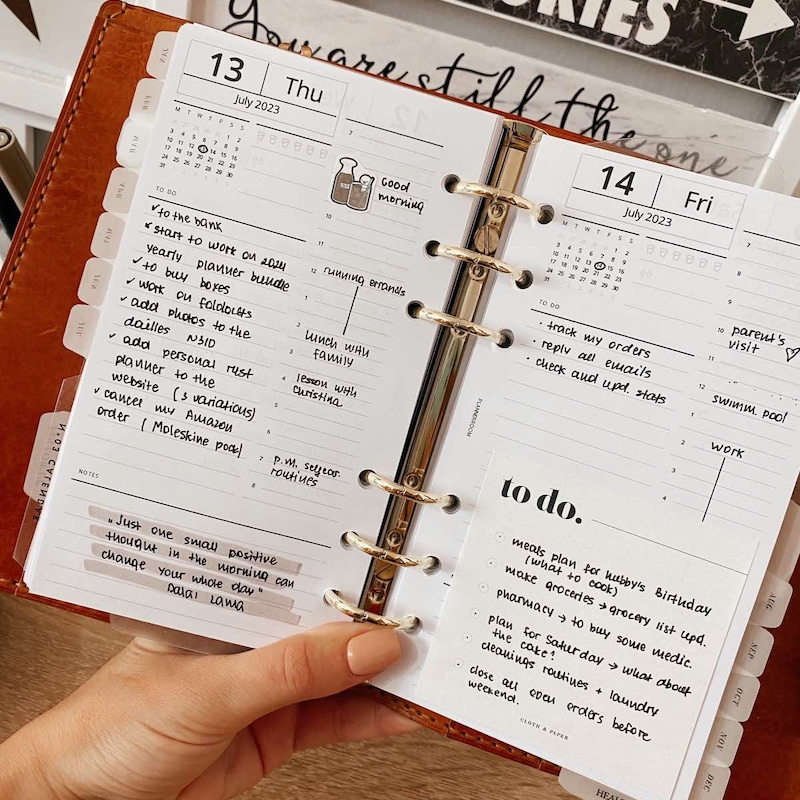 ORIES
You are still the one
13 Thu
July 2023
M T W T F S S
TO DO
✓ to the bank
✓ start to work on 2024
yearly planner bundle
✓ to buy boxes
✓ work on foldouts
✓ add photos to the
dailies N310
✓ add personal rust
planner to the
website (3 variations)
✓ cancel my Amazon
order (Moleskine pods)
NOTES
"Just one small positive
thought in the morning can
change your whole day"
Dalai Lama
7
Good
morning
10
11
12 running errands
1
2 lunch with
3 family
4 lesson with
5 Christina
6
7 p.m. selfcare
8 routines
14 Fri
July 2023
M T W T F S S
TO DO
· track my orders
· reply all emails
· check and upd. stats
7
8
9
10 parent's
11 visit
12
1 swimm. pool
2 work
3
4
PLANNEROOM
to do.
meals plan for hubby's Birthday
(what to cook)
make groceries → grocery list upd.
pharmacy → to buy some medic.
plan for Saturday → what about
the cake?
cleanings routines + laundry
close all open orders before
weekend.
CLOTH & PAPER
JAN
FEB
MAR
APR
MAY
JUN
JUL
N°03 CALENDAR
AUG
SEP
OCT
NOV
DEC